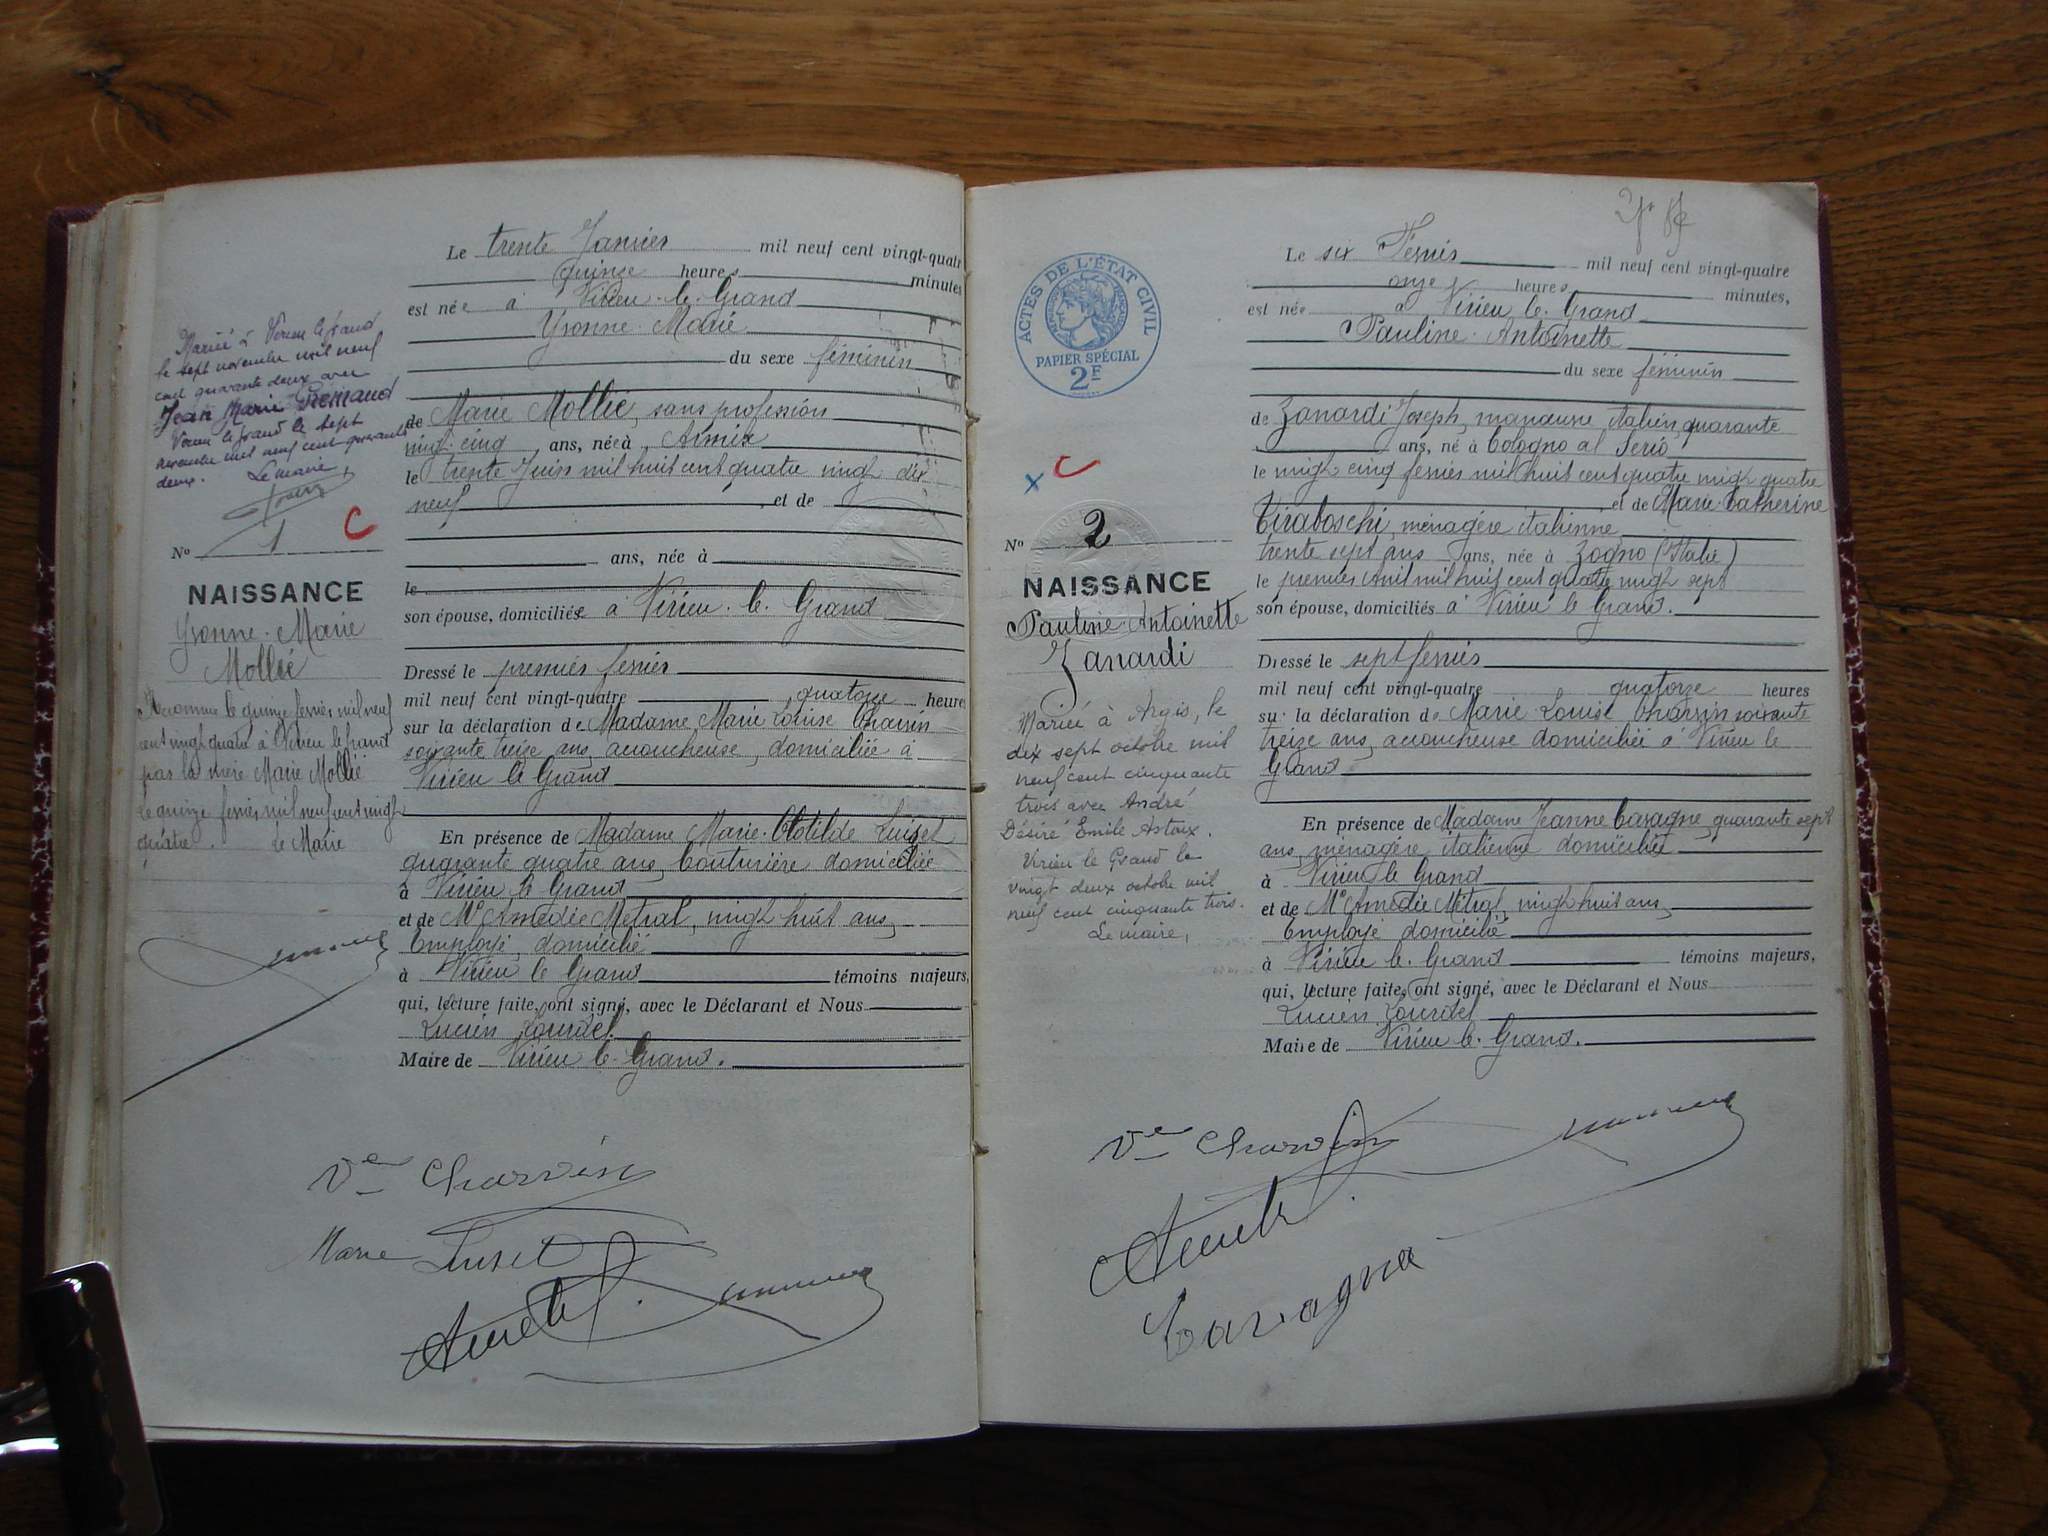 Marié à Virieu le grand
le sept novembre mil neuf
cent quarante deux avec
Jean Marie
Virieu le grand le sept
novembre mil neuf cent quarante
deux. Le maire,
No 1 C
NAISSANCE
Yvonne-Marie
Mollié
Reconnue le quinze fevrier mil neuf
cent vingt quatre à Virieu le grand
par la mère Marie Mollié
Le quinze fevrier mil neuf cent vingt
quatre. Le Maire
Le trente Janvier mil neuf cent vingt-quatre
quinze heures minutes
est née à Virieu-le-Grand
Yvonne-Marie
du sexe féminin
de Marie Mollié, sans profession
vingt cinq ans, née à
le trente Juin mil huit cent quatre vingt dix
neuf et de
ans, née à
le
son épouse, domiciliée à Virieu-le-Grand
Dressé le premier fevrier
mil neuf cent vingt-quatre quatorze heures
sur la déclaration de Madame Marie Louise Charvin
soixante treize ans, accoucheuse, domiciliée à
Virieu le Grand
En présence de Madame Marie-Clotilde Luiset
quarante quatre ans, Couturière domiciliée
à Virieu le Grand
et de Mr Amédée Métral, vingt huit ans,
Employé, domicilié
à Virieu le Grand témoins majeurs,
qui, lecture faite, ont signé, avec le Déclarant et Nous
Lucien Tourdel
Maire de Virieu-le-Grand.
Vve Charvin
Marie Luiset
ACTES DE L'ÉTAT CIVIL
PAPIER SPÉCIAL
2F
x C
No 2
NAISSANCE
Pauline-Antoinette
Zanardi
Mariée à Argis, le
dix sept octobre mil
neuf cent cinquante
trois avec André
Désiré Emile Astoux.
Virieu le Grand le
vingt deux octobre mil
neuf cent cinquante trois.
Le maire,
Le six Fevrier mil neuf cent vingt-quatre
onze heures minutes,
est née à Virieu-le-Grand
Pauline-Antoinette
du sexe féminin
de Zanardi Joseph, manœuvre italien, quarante
ans, né à Cologno al Serio
le vingt cinq fevrier mil huit cent quatre vingt quatre
et de Marie-Catherine
Tiraboschi, ménagère italienne
trente sept ans ans, née à Zogno (Italie)
le premier Avril mil huit cent quatre vingt sept
son épouse, domiciliés à Virieu le Grand.
Dressé le sept fevrier
mil neuf cent vingt-quatre quatorze heures
sur la déclaration de Marie-Louise Charvin soixante
treize ans, accoucheuse domiciliée à Virieu le
Grand
En présence de Madame Jeanne Cavagne, quarante sept
ans, ménagère italienne domiciliée
à Virieu le Grand
et de Mr Amédée Métral, vingt huit ans,
Employé domicilié
à Virieu le-Grand témoins majeurs,
qui, lecture faite, ont signé, avec le Déclarant et Nous
Lucien Tourdel
Maire de Virieu le-Grand.
Vve Charvin
Cavagna